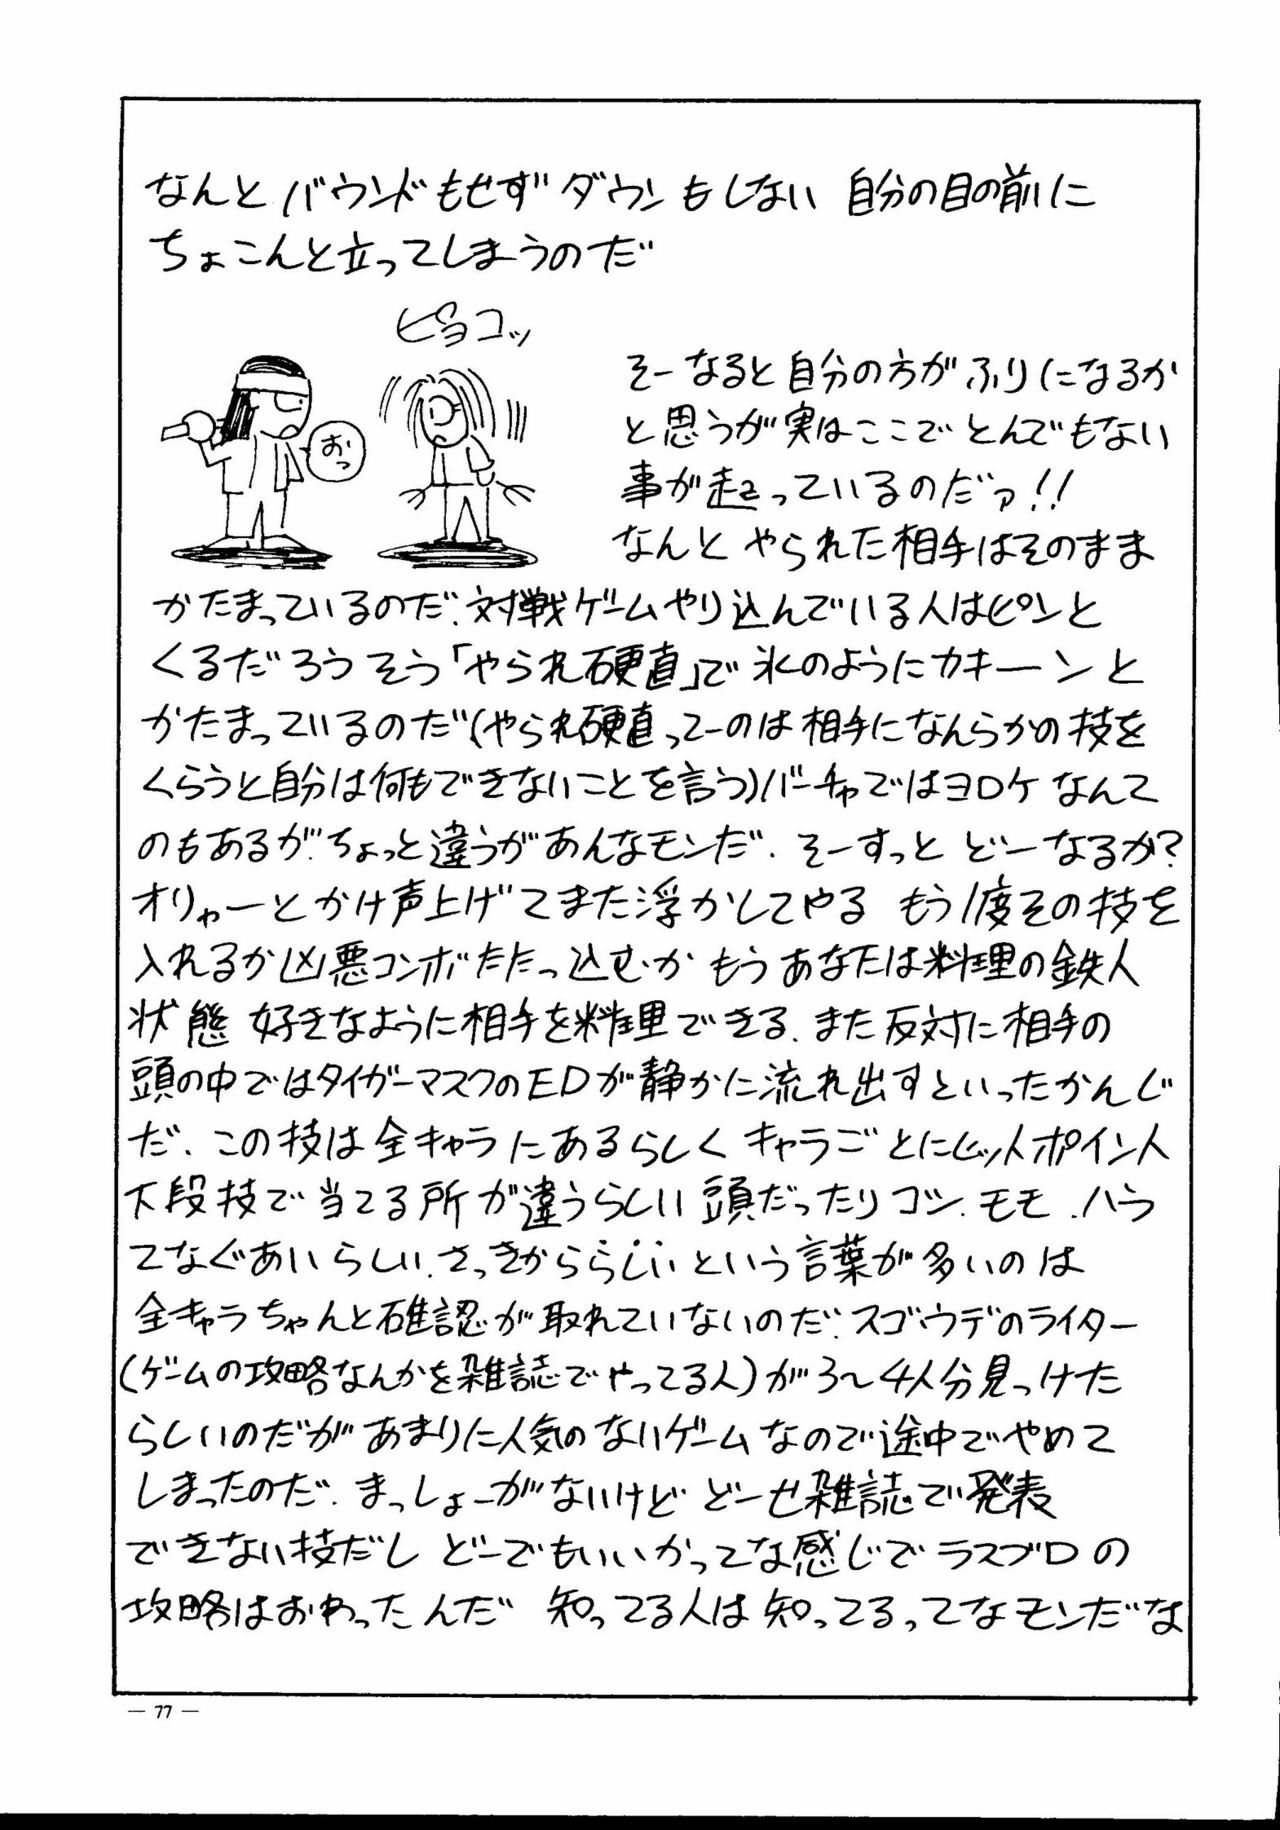 なんと バウンドもせず ダウンもしない 自分の目の前に
ちょこんと立ってしまうのだ
ピョコッ
おっ
そーなると自分の方が ふりになるか
と思うが実はここで とんでもない
事が起こっているのだァ!!
なんと やられた相手はそのまま
かたまっているのだ、対戦ゲームやり込んでいる人はピンと
くるだろう そう「やられ硬直」で 氷のようにカキーンと
かたまっているのだ(やられ硬直ってーのは相手になんらかの技を
くらうと自分は何もできないことを言う)バーチャではヨロケ なんて
のもあるが、ちょっと違うがあんなモンだ、そーすっと どーなるか?
オリャーと かけ声上げてまた浮かしてやる もう1度その技を
入れるか 凶悪コンボたたっ込むか もうあなたは料理の鉄人
状態 好きなように相手を料理できる、また反対に相手の
頭の中ではタイガーマスクのEDが静かに流れ出すといったかんじ
だ、この技は全キャラにあるらしく キャラごとにヒットポイント
下段技で当てる所が違うらしい 頭だったり コシ、モモ、ハラ
てなぐあいらしい、さっきかららしいという言葉が多いのは
全キャラちゃんと確認が取れていないのだ、スゴウデのライター
(ゲームの攻略なんかを雑誌でやってる人)が3〜4人分見つけた
らしいのだが あまりに人気のないゲームなので途中でやめて
しまったのだ、まっしょーがないけど どーせ雑誌で発表
できない技だし どーでもいいかってな感じで ラスブロの
攻略はおわったんだ 知ってる人は知ってるってなモンだな
— 77 —